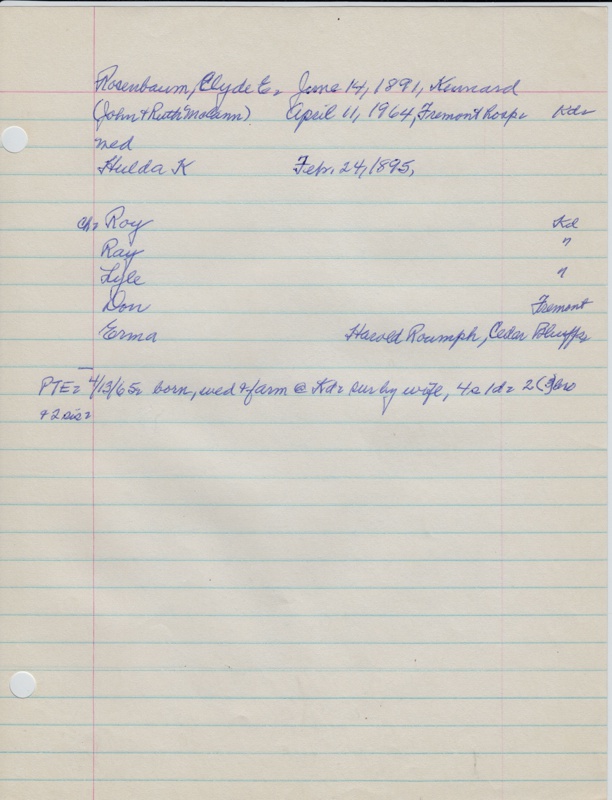 Rosenbaum, Clyde E. June 14, 1891, Kennard
(John + Ruth McCann) April 11, 1964, Fremont Hosp. Kd.
wed
Hulda K Feb. 24, 1895,
ch. Roy Kd
Ray "
Lyle "
Don Fremont
Erma Harold Roumph, Cedar Bluffs
PTE= 4/13/65= born, wed + farm @ Kd= sur by wife, 4s 1d= 2 bro
+ 2 sis=